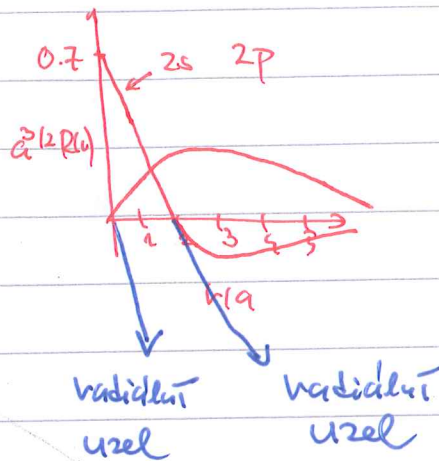 0.7 2s 2p
a^3/2 R(r)
1 2 3 4 5
r/a
radiální radiální
uzel uzel